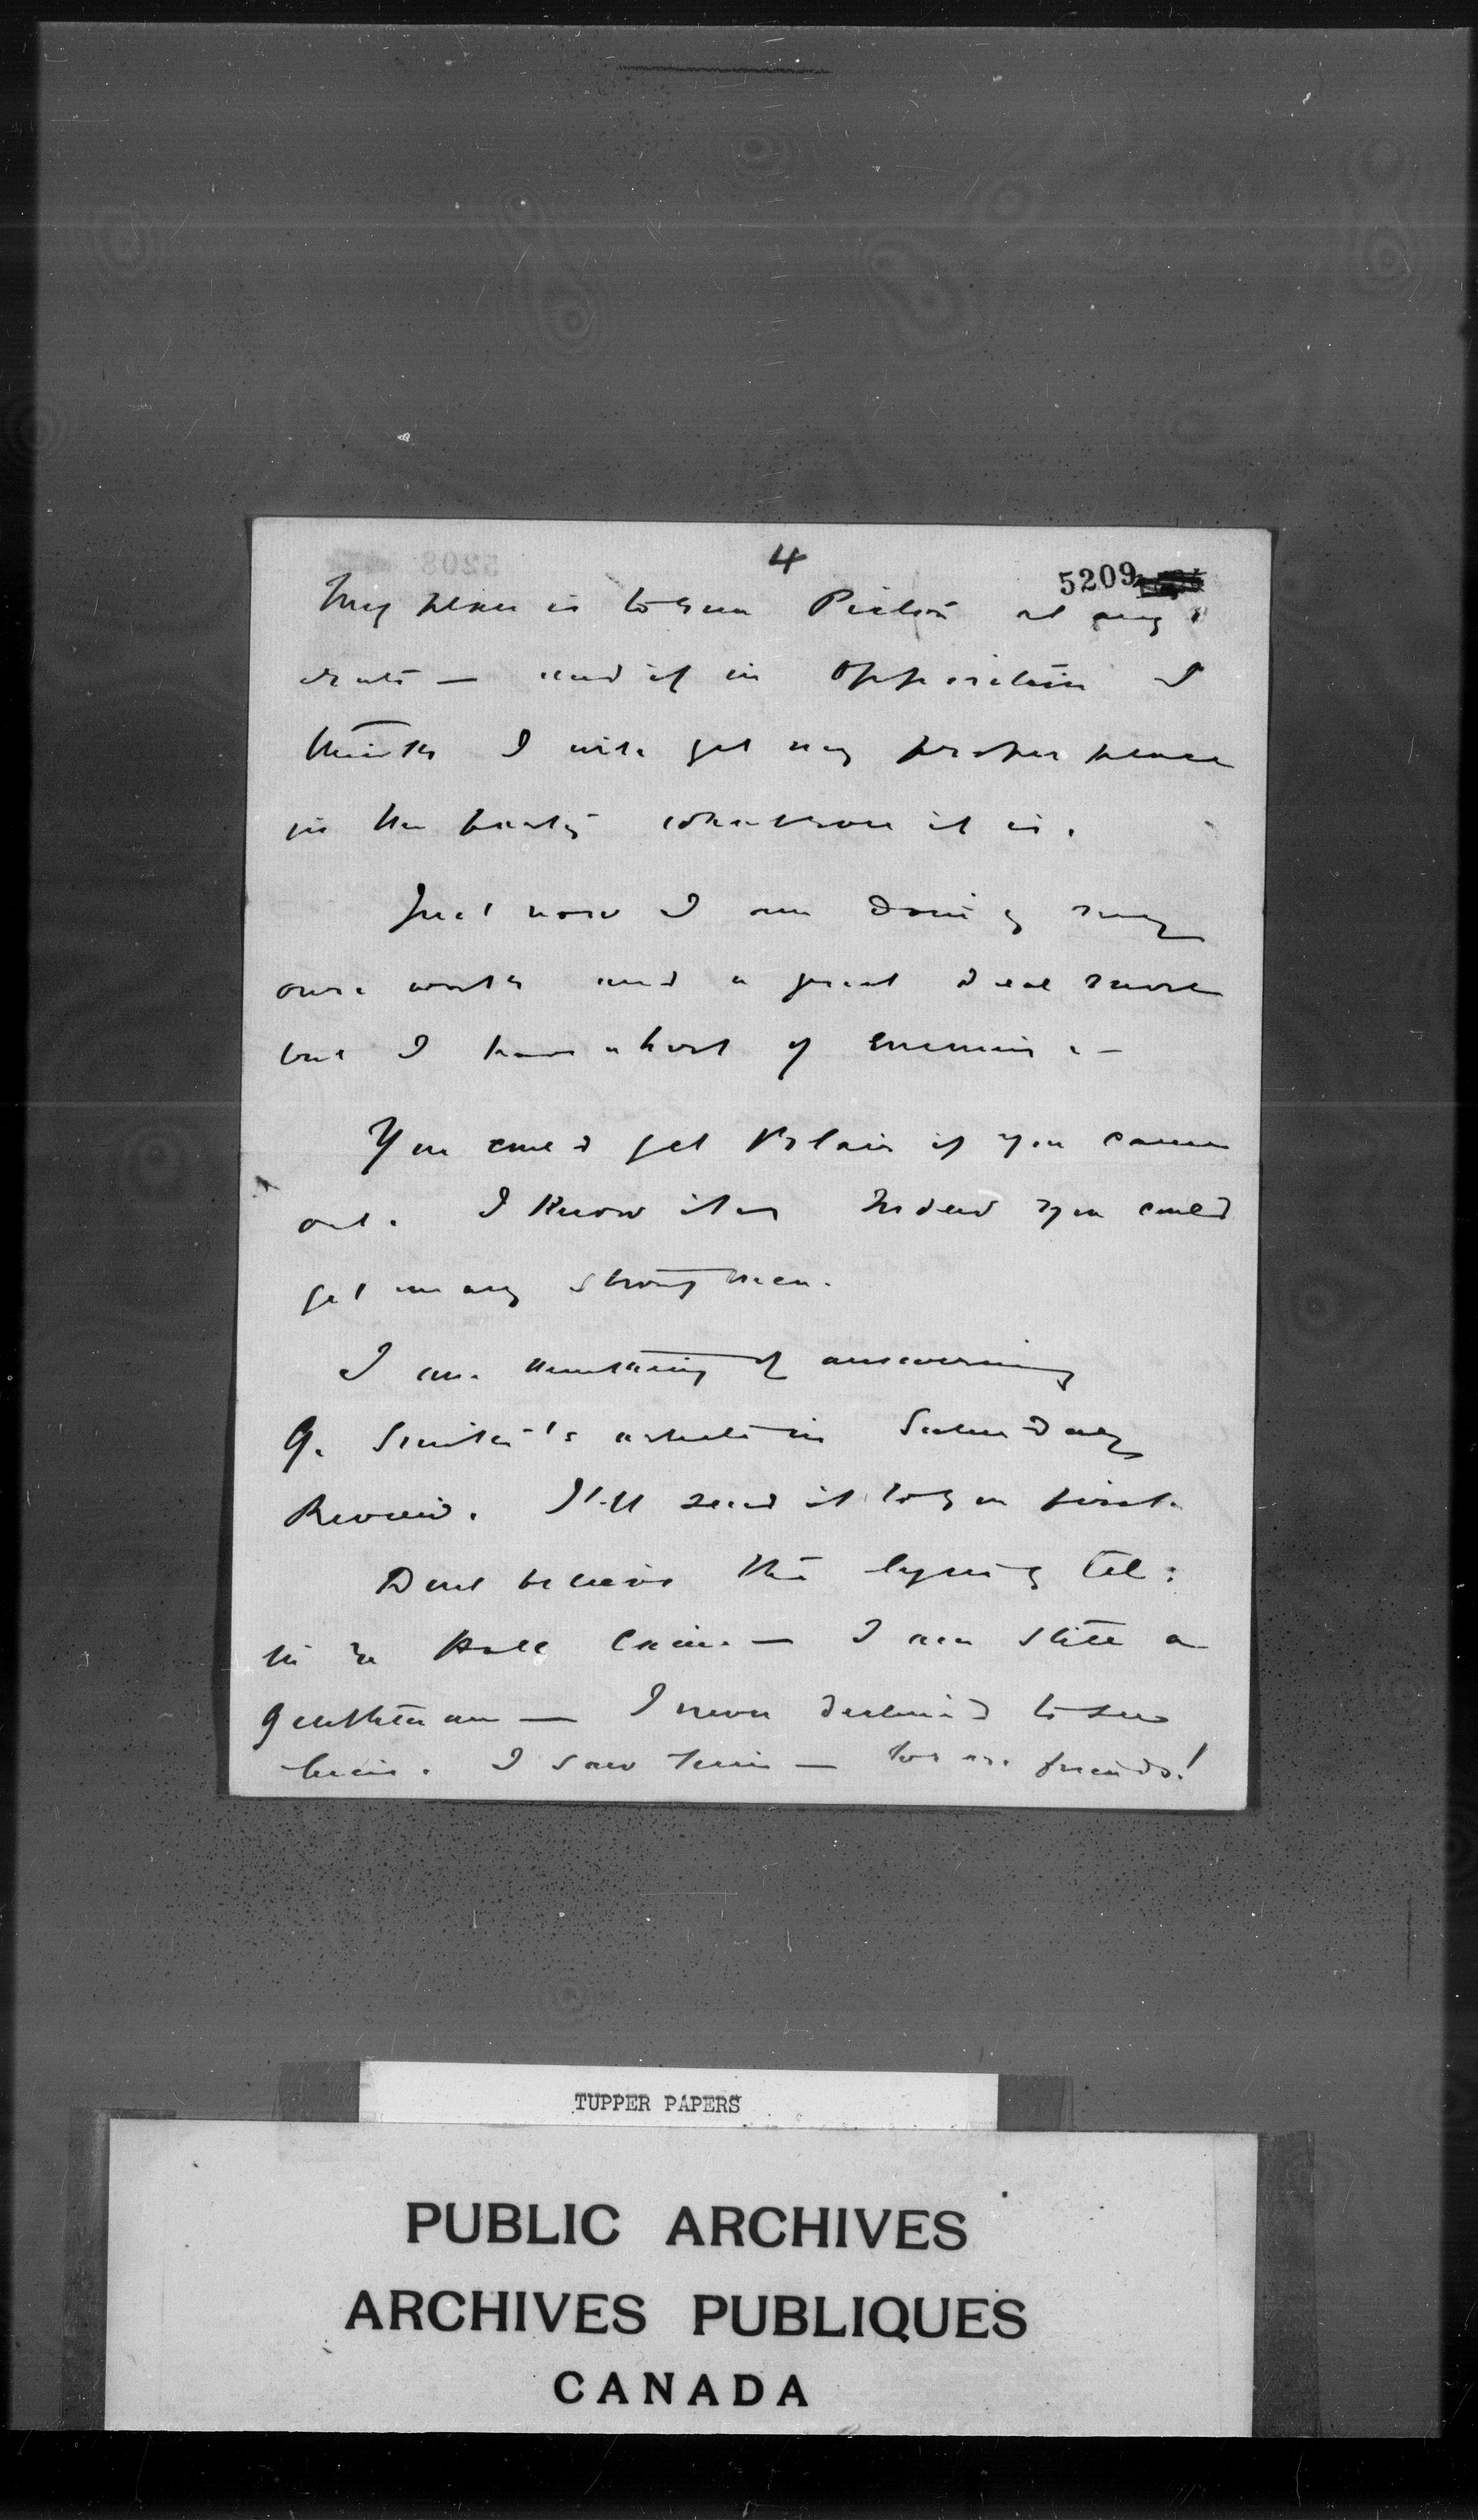 4
5209
My plan is to run Pictou at any
rate — and if in opposition I
think I will get my proper place
in the party whatever it is.
Just now I am doing my
own work and a great deal more
but I have a host of enemies —
You could get Blair if you came
out. I know it as Indeed you could
get many strong men.
I am thinking of answering
G. Smith's article in Saturday
Review. I'll send it to you first.
Dont believe the lying tel:
in re Hall Caine — I am still a
gentleman — I never declined to see
him. I saw him — We are friends!
TUPPER PAPERS
PUBLIC ARCHIVES
ARCHIVES PUBLIQUES
CANADA